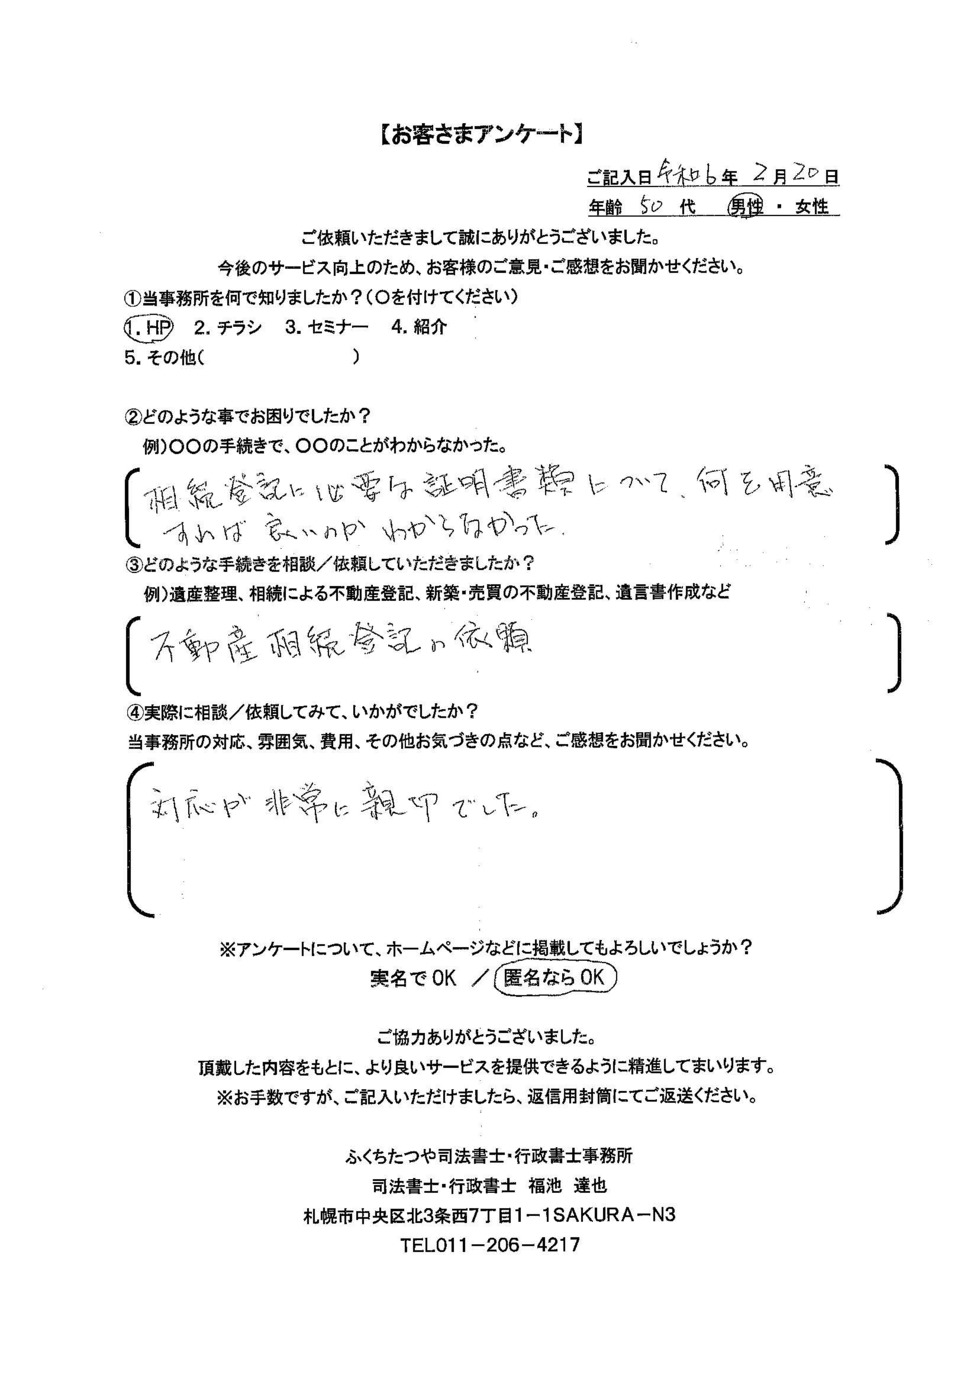 【お客さまアンケート】
ご記入日 令和6年 2月20日
年齢 50 代 男性 ・ 女性
ご依頼いただきまして誠にありがとうございました。
今後のサービス向上のため、お客様のご意見・ご感想をお聞かせください。
①当事務所を何で知りましたか？(○を付けてください)
1. HP 2. チラシ 3. セミナー 4. 紹介
5. その他( )
②どのような事でお困りでしたか？
例)○○の手続きで、○○のことがわからなかった。
相続登記に必要な証明書類について、何を用意
すれば良いのかわからなかった.
③どのような手続きを相談／依頼していただきましたか？
例)遺産整理、相続による不動産登記、新築・売買の不動産登記、遺言書作成など
不動産相続登記の依頼
④実際に相談／依頼してみて、いかがでしたか？
当事務所の対応、雰囲気、費用、その他お気づきの点など、ご感想をお聞かせください。
対応が非常に親切でした。
※アンケートについて、ホームページなどに掲載してもよろしいでしょうか？
実名でOK ／ 匿名ならOK
ご協力ありがとうございました。
頂戴した内容をもとに、より良いサービスを提供できるように精進してまいります。
※お手数ですが、ご記入いただけましたら、返信用封筒にてご返送ください。
ふくちたつや司法書士・行政書士事務所
司法書士・行政書士 福池 達也
札幌市中央区北3条西7丁目1－1SAKURA－N3
TEL011－206－4217